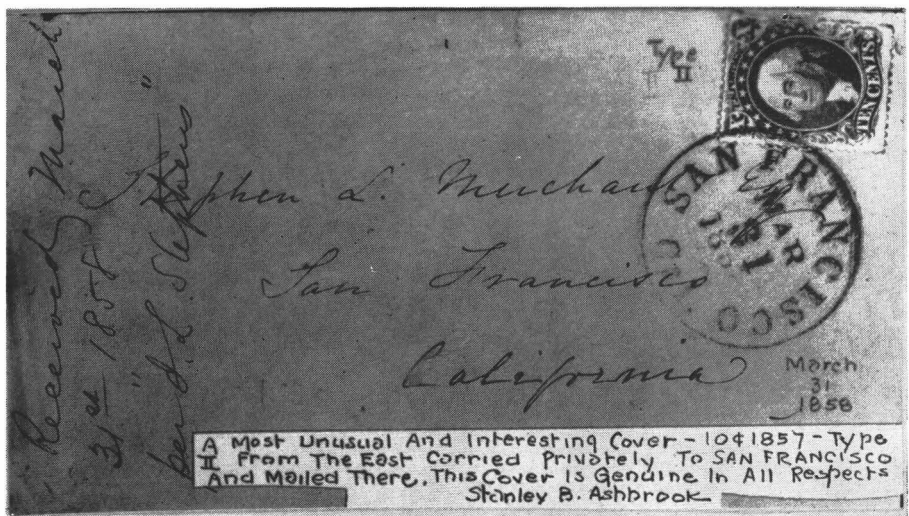 "Received March
31st 1858"
per J. L. Stephens"
Type
II
TEN CENTS
Stephen L. Merchant Esq
San Francisco
California
SAN FRANCISCO CAL
MAR
31
1858
March
31
1858
A Most Unusual And Interesting Cover - 10¢ 1857 - Type
II From The East Carried Privately To SAN FRANCISCO
And Mailed There. This Cover Is Genuine In All Respects
Stanley B. Ashbrook